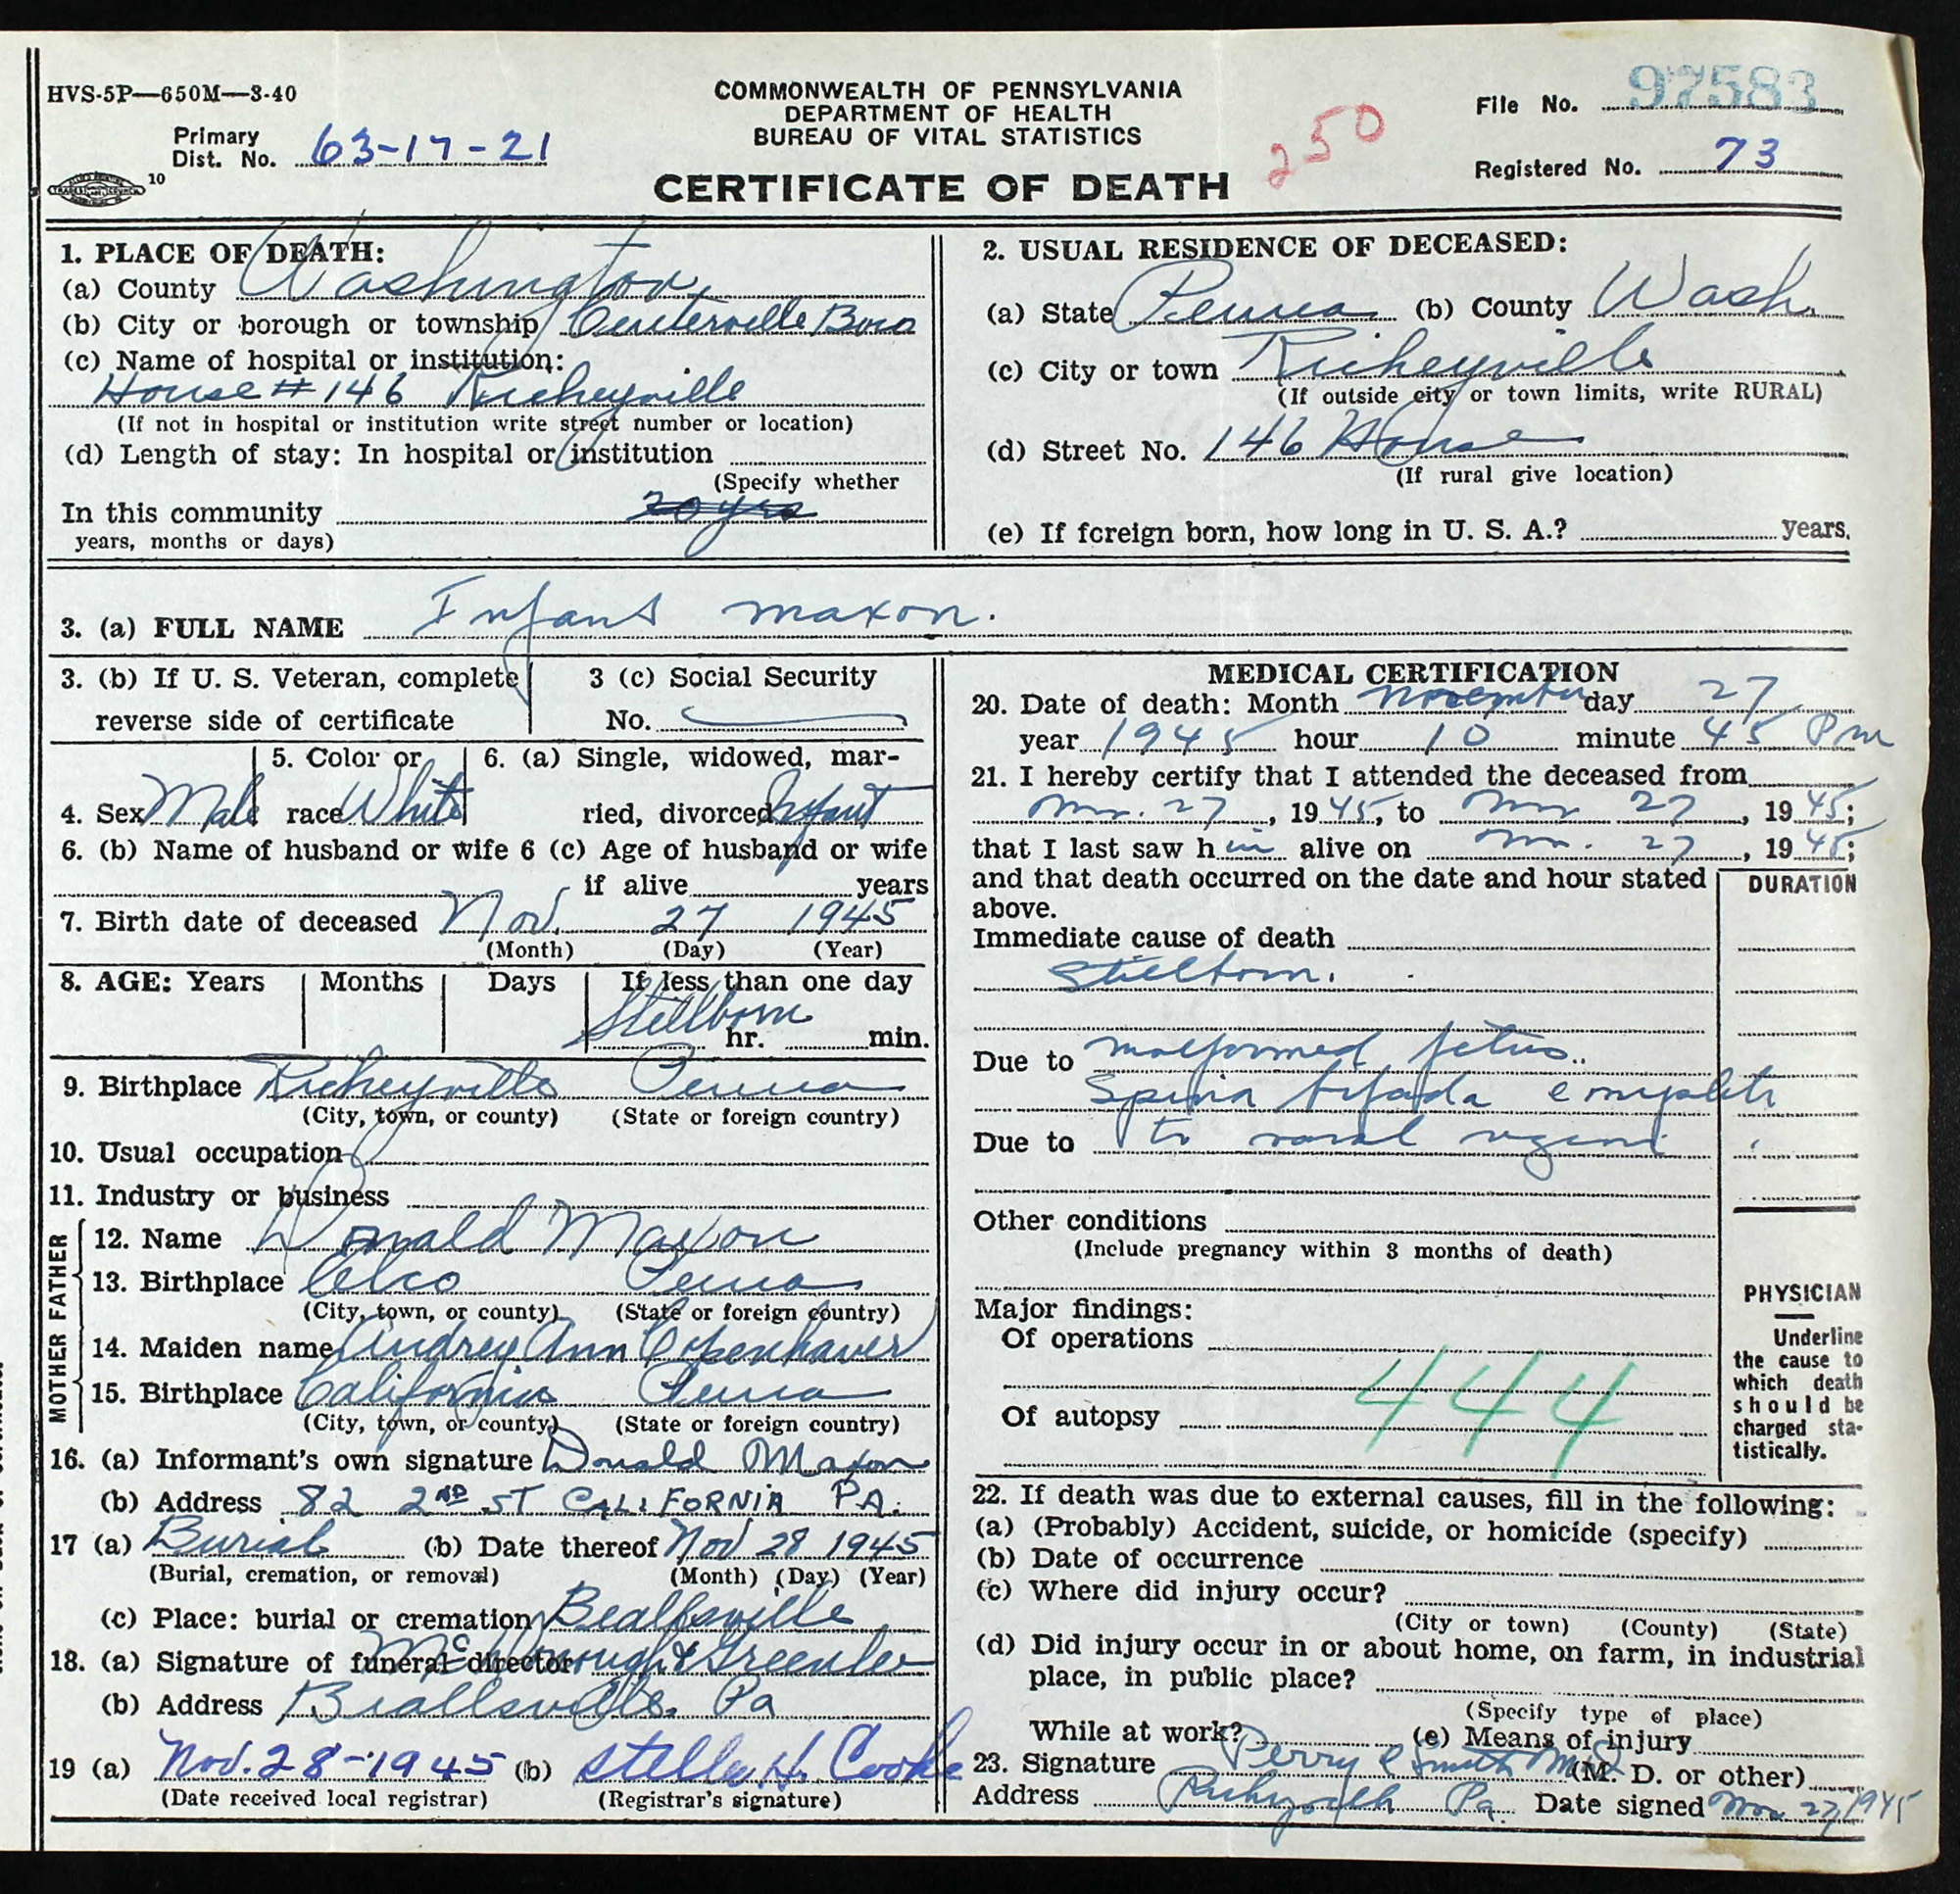 HVS-5P—650M—3-40
COMMONWEALTH OF PENNSYLVANIA
DEPARTMENT OF HEALTH
BUREAU OF VITAL STATISTICS
CERTIFICATE OF DEATH
250
File No. 97583
Registered No. 73
Primary
Dist. No. 63-17-21
10
1. PLACE OF DEATH:
(a) County Washington,
(b) City or borough or township Centerville Boro
(c) Name of hospital or institution:
House # 146 Richeyville
(If not in hospital or institution write street number or location)
(d) Length of stay: In hospital or institution
(Specify whether
In this community 20 yrs
years, months or days)
2. USUAL RESIDENCE OF DECEASED:
(a) State Penna (b) County Wash.
(c) City or town Richeyville
(If outside city or town limits, write RURAL)
(d) Street No. 146 House
(If rural give location)
(e) If foreign born, how long in U. S. A.? years.
3. (a) FULL NAME Infant Maxon.
3. (b) If U. S. Veteran, complete
reverse side of certificate
3 (c) Social Security
No.
4. Sex Male
5. Color or
race White
6. (a) Single, widowed, mar-
ried, divorced Infant
6. (b) Name of husband or wife 6 (c) Age of husband or wife
if alive years
7. Birth date of deceased Nov. 27 1945
(Month) (Day) (Year)
8. AGE: Years Months Days If less than one day
Stillborn
hr. min.
9. Birthplace Richeyville Penna
(City, town, or county) (State or foreign country)
10. Usual occupation
11. Industry or business
FATHER
12. Name Donald Maxon
13. Birthplace Elco Penna
(City, town, or county) (State or foreign country)
MOTHER
14. Maiden name Audrey Ann Copenhaver
15. Birthplace California Penna
(City, town, or county) (State or foreign country)
16. (a) Informant's own signature Donald Maxon
(b) Address 82 2ND ST CALIFORNIA PA.
17 (a) Burial (b) Date thereof Nov 28 1945
(Burial, cremation, or removal) (Month) (Day) (Year)
(c) Place: burial or cremation Beallsville
18. (a) Signature of funeral director & Greenlee
(b) Address Beallsville. Pa
19 (a) Nov. 28-1945 (b) Stella H. Cooke
(Date received local registrar) (Registrar's signature)
MEDICAL CERTIFICATION
20. Date of death: Month November day 27
year 1945 hour 10 minute 45 Pm
21. I hereby certify that I attended the deceased from
Nov. 27, 1945, to Nov 27, 1945;
that I last saw him alive on Nov. 27, 1945;
and that death occurred on the date and hour stated
above.
DURATION
Immediate cause of death
Stillborn.
Due to malformed fetus..
Spina bifada complete
Due to to
Other conditions
(Include pregnancy within 3 months of death)
Major findings:
Of operations
Of autopsy
444
PHYSICIAN
Underline
the cause to
which death
should be
charged sta-
tistically.
22. If death was due to external causes, fill in the following:
(a) (Probably) Accident, suicide, or homicide (specify)
(b) Date of occurrence
(c) Where did injury occur?
(City or town) (County) (State)
(d) Did injury occur in or about home, on farm, in industrial
place, in public place?
(Specify type of place)
While at work? (e) Means of injury
23. Signature Perry C Smith M D (M. D. or other)
Address Richeyville Pa. Date signed Nov 27, 1945